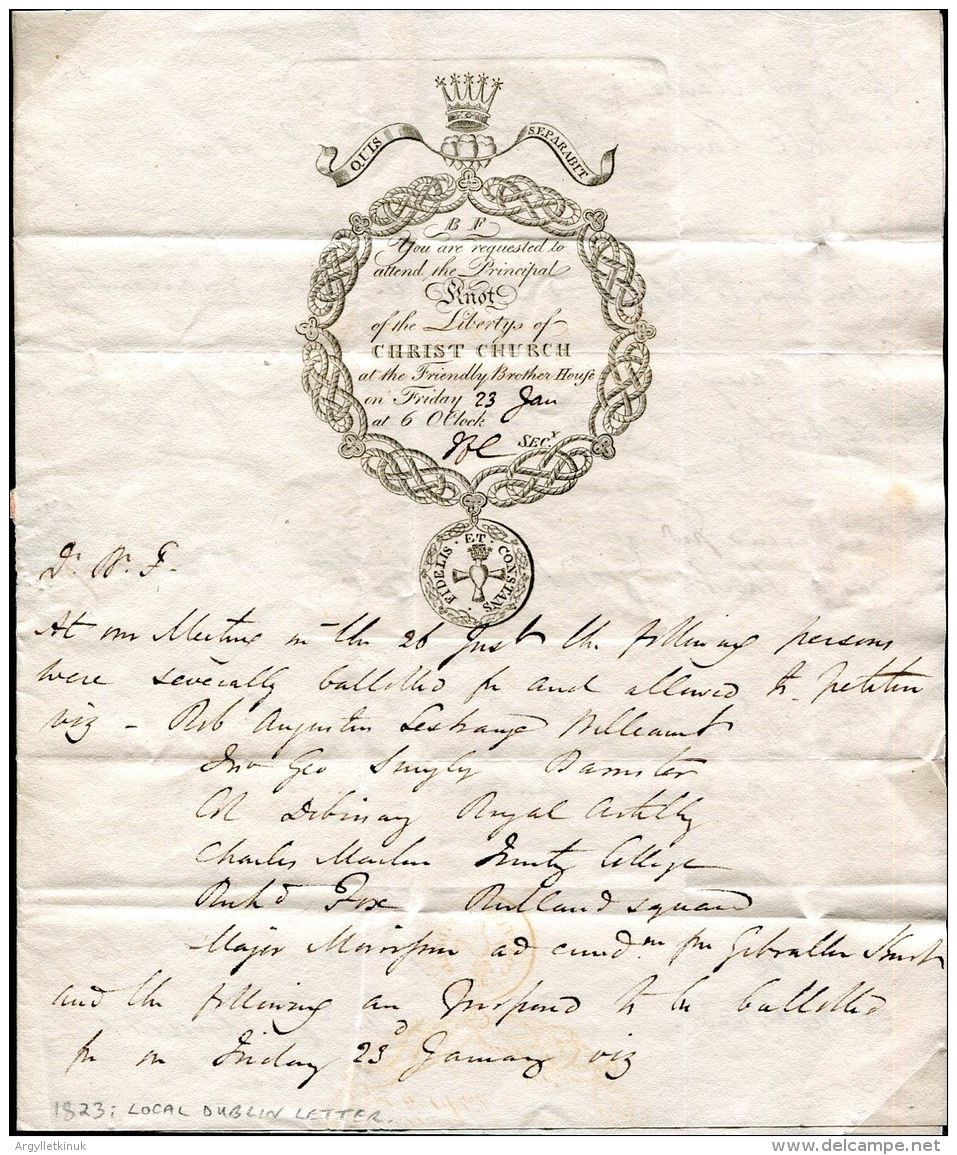 QUIS SEPARABIT
B F
You are requested to
attend the Principal
Knot
of the Libertys of
CHRIST CHURCH
at the Friendly Brother House
on Friday 23 Jan
at 6 OClock
SECY
FIDELIS · ET · CONSTANS ·
Dr. Br. F.
At our Meeting on the 26 Inst the following persons
were severally ballotted for and allowed to petition
viz - Rob Augustus Lestrange
Jno Geo Barrister
Royal Artilly
Charles Trinity College
Richd Fox Rutland square
Major Morrison ad from Gibralter Knot
and the following are proposed to be ballotted
for on Friday 23d January viz
1823; LOCAL DUBLIN LETTER.
Argylletkinuk
www.delcampe.net